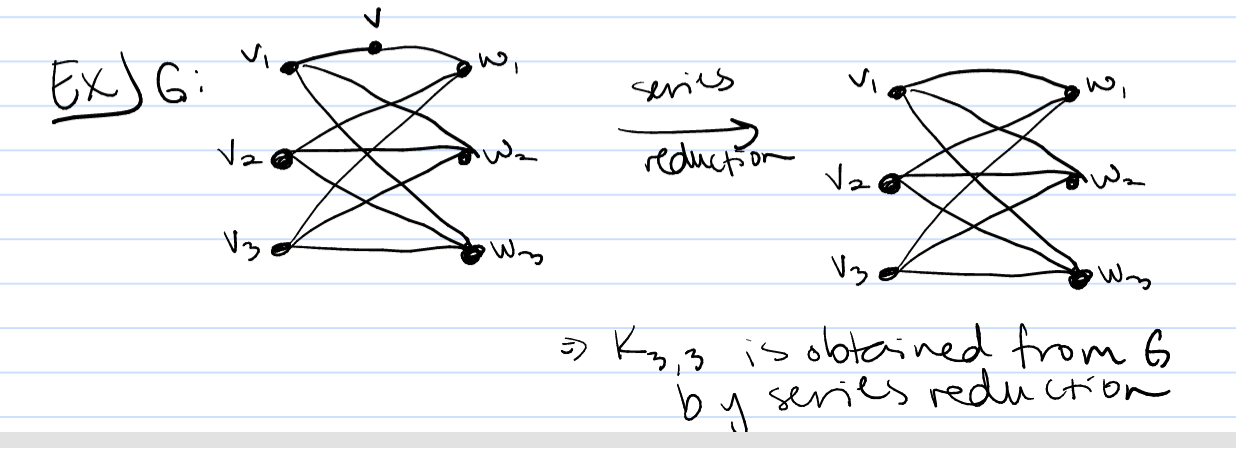 Ex) G:
v
v₁ w₁
v₂ w₂
v₃ w₃
series
reduction
v₁ w₁
v₂ w₂
v₃ w₃
⇒ K₃,₃ is obtained from G
by series reduction